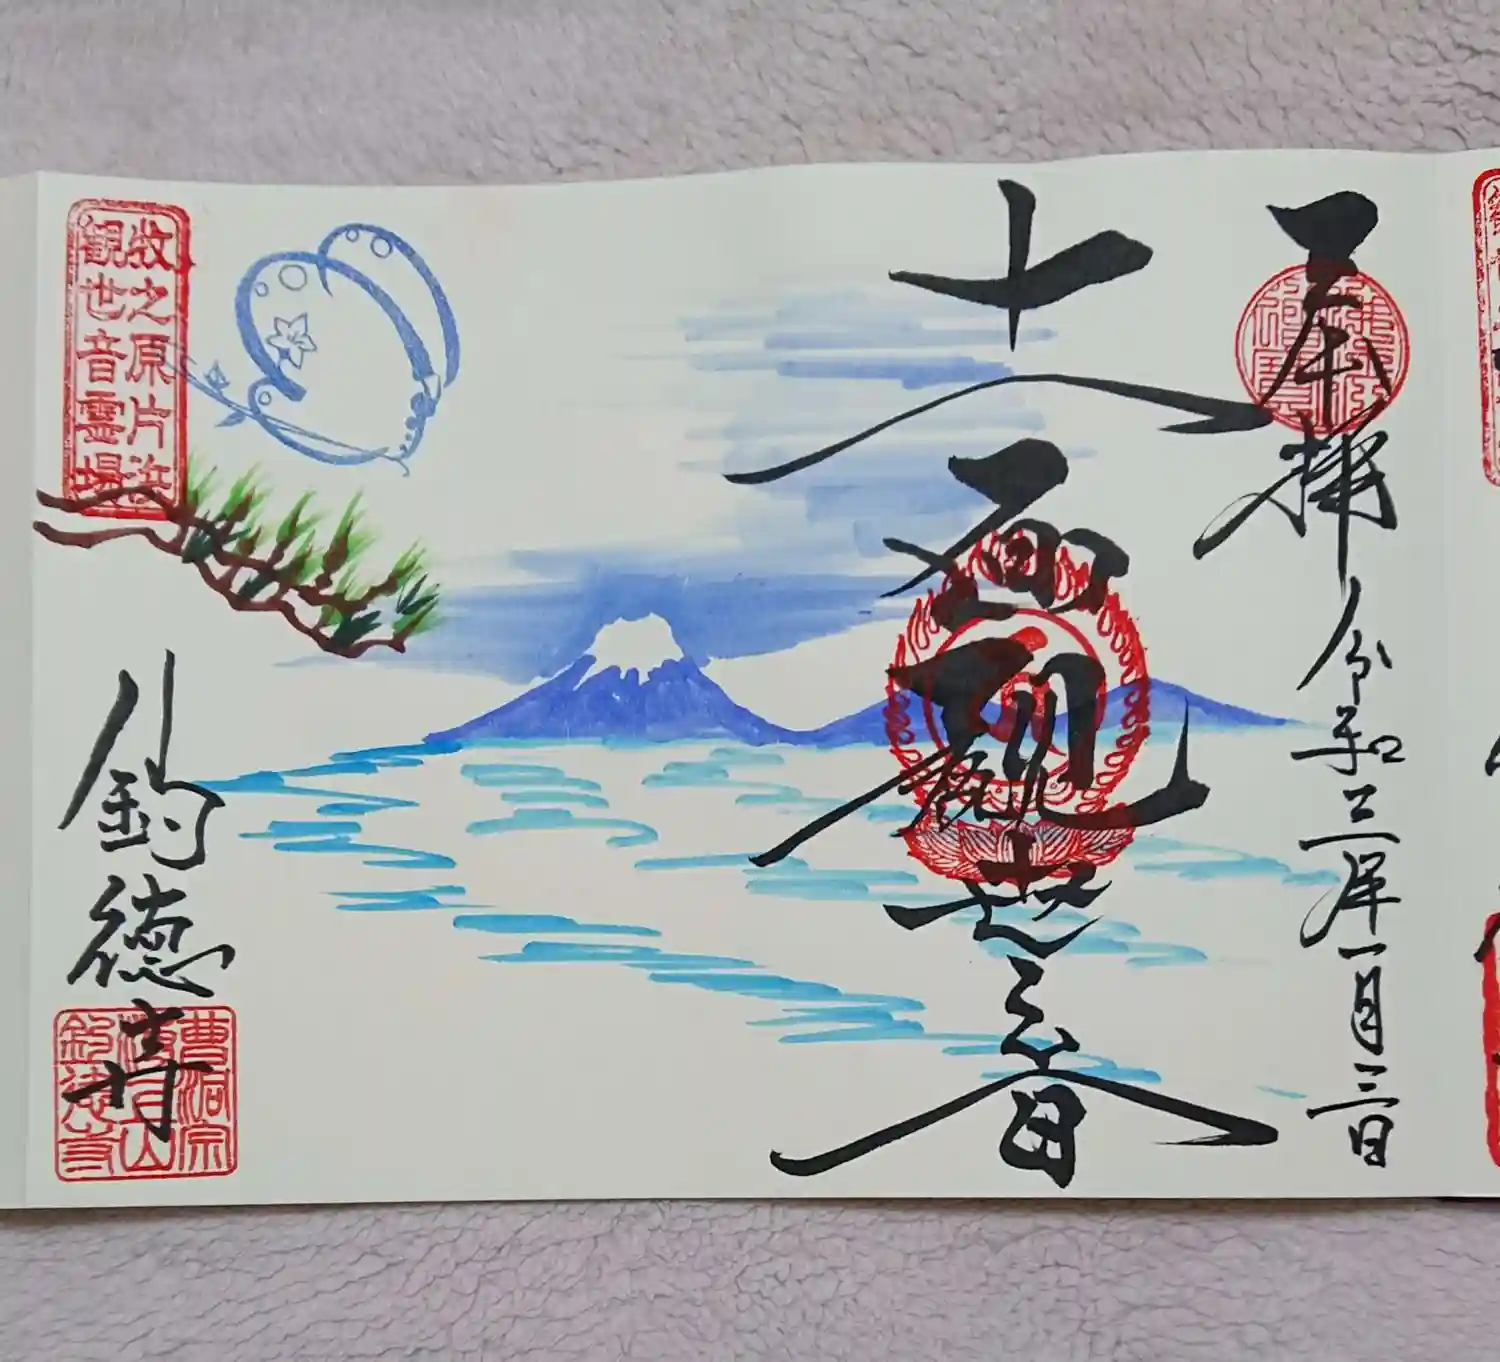 奉拝
令和三年一月三日
十一面観世音
牧之原片浜
観世音霊場
釣徳寺
曹洞宗
釣徳寺